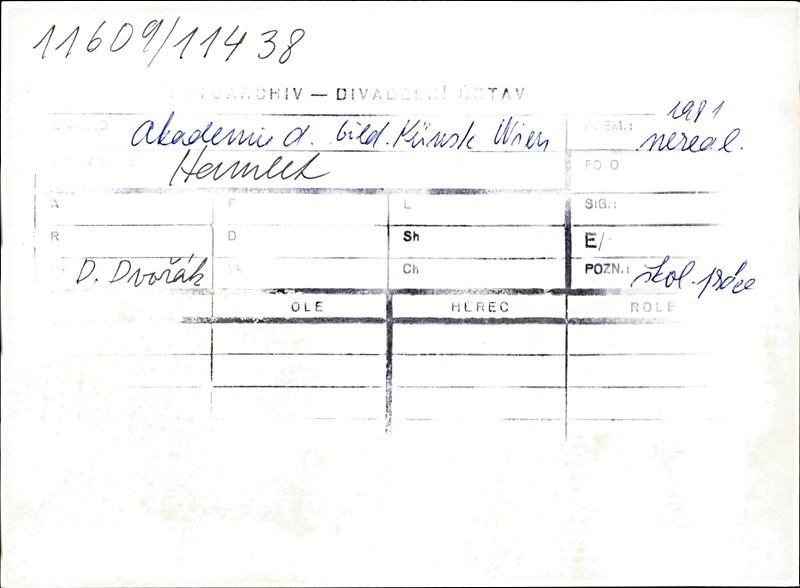 11609/11438
ARCHIV — DIVADELNÍ ÚSTAV
Akademie d. bild. Künst Wien
PREM.: 1981 nereal.
Hamlet
FOTO
A P L SIG.:
R D Sh E/-
D. Dvořák Ch POZN.: škol. práce
OLE HEREC ROLE